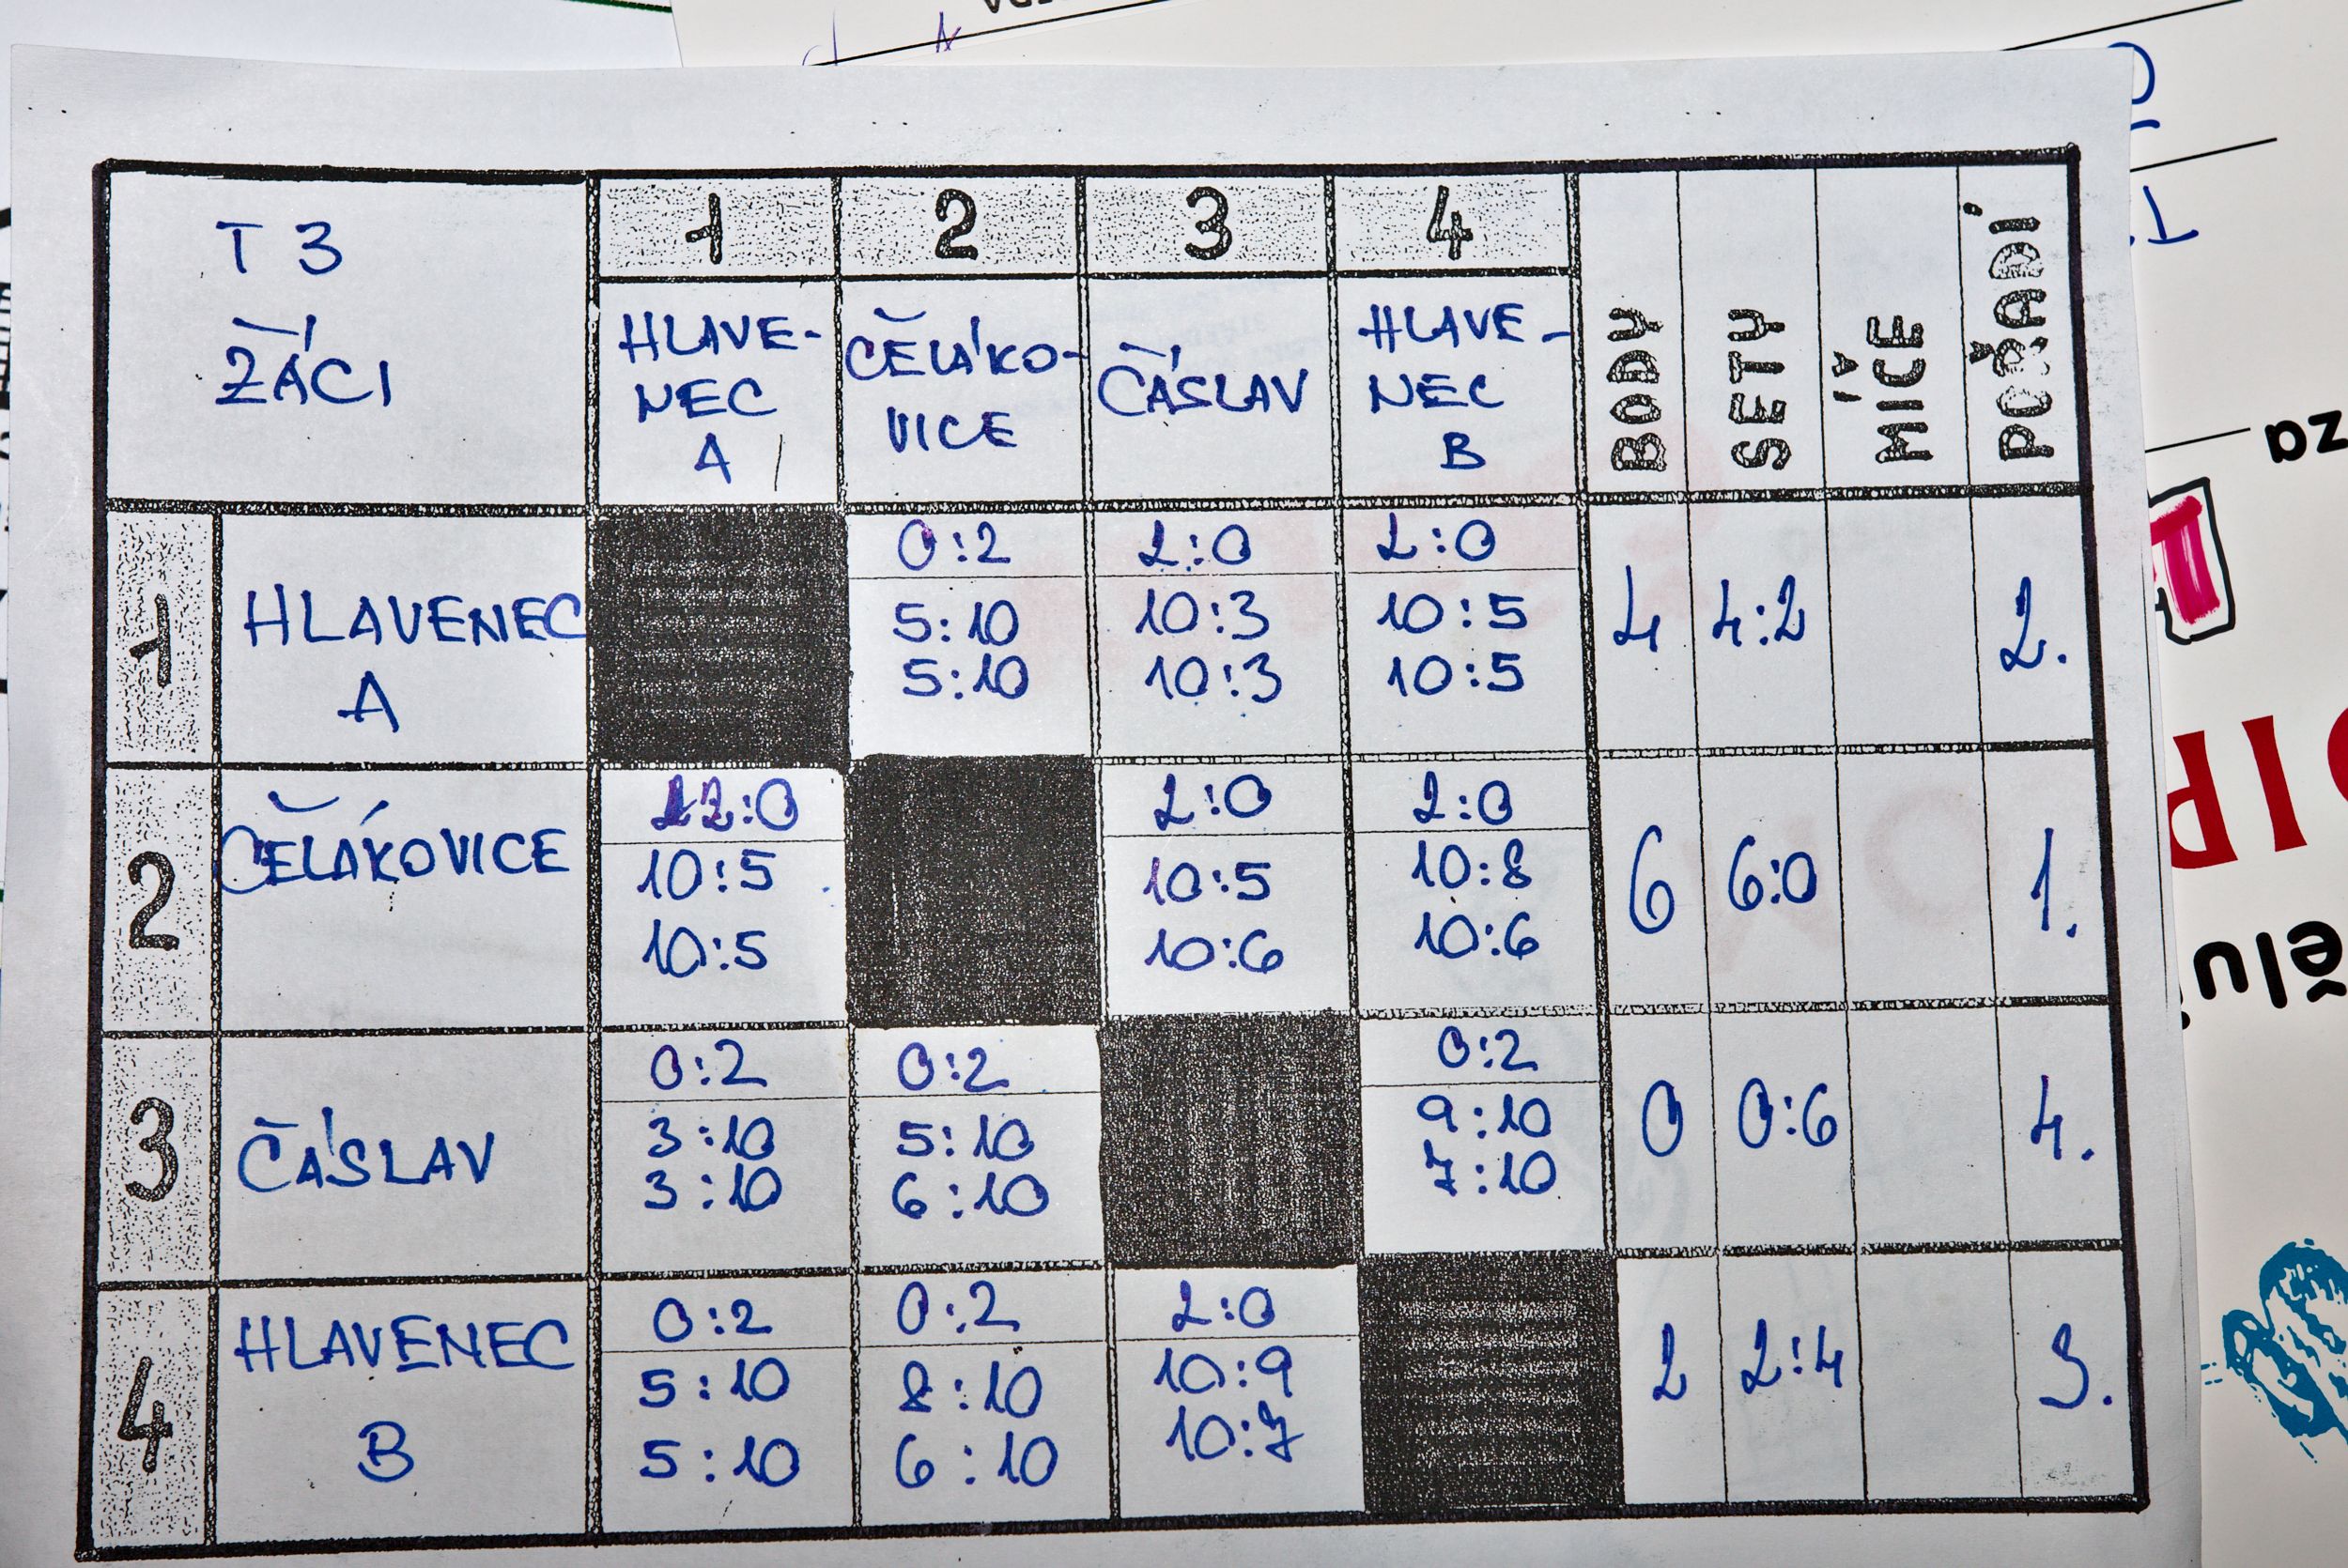 T 3
ŽÁCI
1
2
3
4
HLAVE-
NEC
A
ČELÁKO-
VICE
ČÁSLAV
HLAVE-
NEC
B
BODY
SETY
MÍČE
POŘADÍ
1
HLAVENEC
A
0:2
5:10
5:10
2:0
10:3
10:3
2:0
10:5
10:5
4
4:2
2.
2
ČELÁKOVICE
2:0
10:5
10:5
2:0
10:5
10:6
2:0
10:8
10:6
6
6:0
1.
3
ČÁSLAV
0:2
3:10
3:10
0:2
5:10
6:10
0:2
9:10
7:10
0
0:6
4.
4
HLAVENEC
B
0:2
5:10
5:10
0:2
8:10
6:10
2:0
10:9
10:7
2
2:4
3.
za